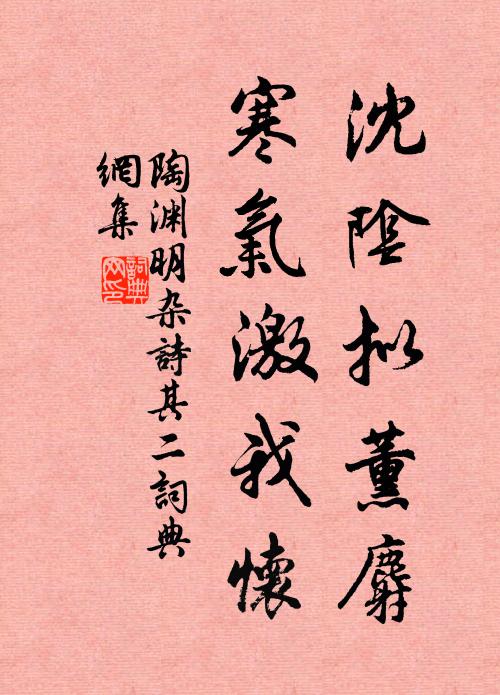 沈陰拟薰麝
寒氣激我懷
陶渊明杂詩其二詞典
網集
詞典網印